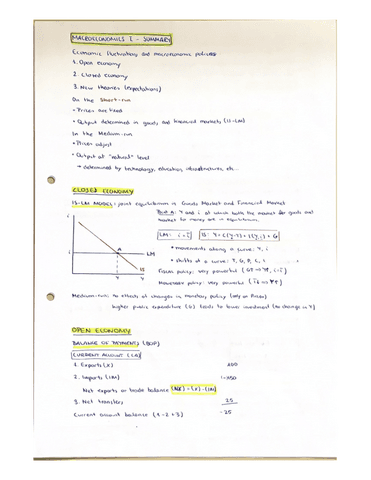 MACROECONOMICS I - SUMMARY
Economic fluctuations and macroeconomic policies
1. Open economy
2. Closed economy
3. New theories (expectations)
On the Short-run
• Prices are fixed
• Output determined in goods and financial markets (IS-LM)
In the Medium-run
• Prices adjust
• Output at "natural" level
→ determined by technology, education, infrastructures, etc...
CLOSED ECONOMY
IS-LM MODEL: joint equilibrium in Goods Market and Financial Market
Point A: Y and i at which both the market for goods and
market for money are in equilibrium.
LM: i = i IS: Y = C(Y-T) + I(Y, i) + G
• movements along a curve: Y, i
• shifts of a curve: T, G, P, C, I
Fiscal policy: very powerful
Monetary policy: very powerful
i
i
A
LM
IS
Y
Y
Medium-run: no effects of changes in monetary policy (only on Prices)
higher public expenditure (G) leads to lower investment (no change in Y)
OPEN ECONOMY
BALANCE OF PAYMENTS (BOP)
CURRENT ACCOUNT (CA)
1. Exports (X)
2. Imports (IM)
Net exports or trade balance (NX) = (X) - (IM)
3. Net transfers 25
Current account balance (1 - 2 + 3) -25